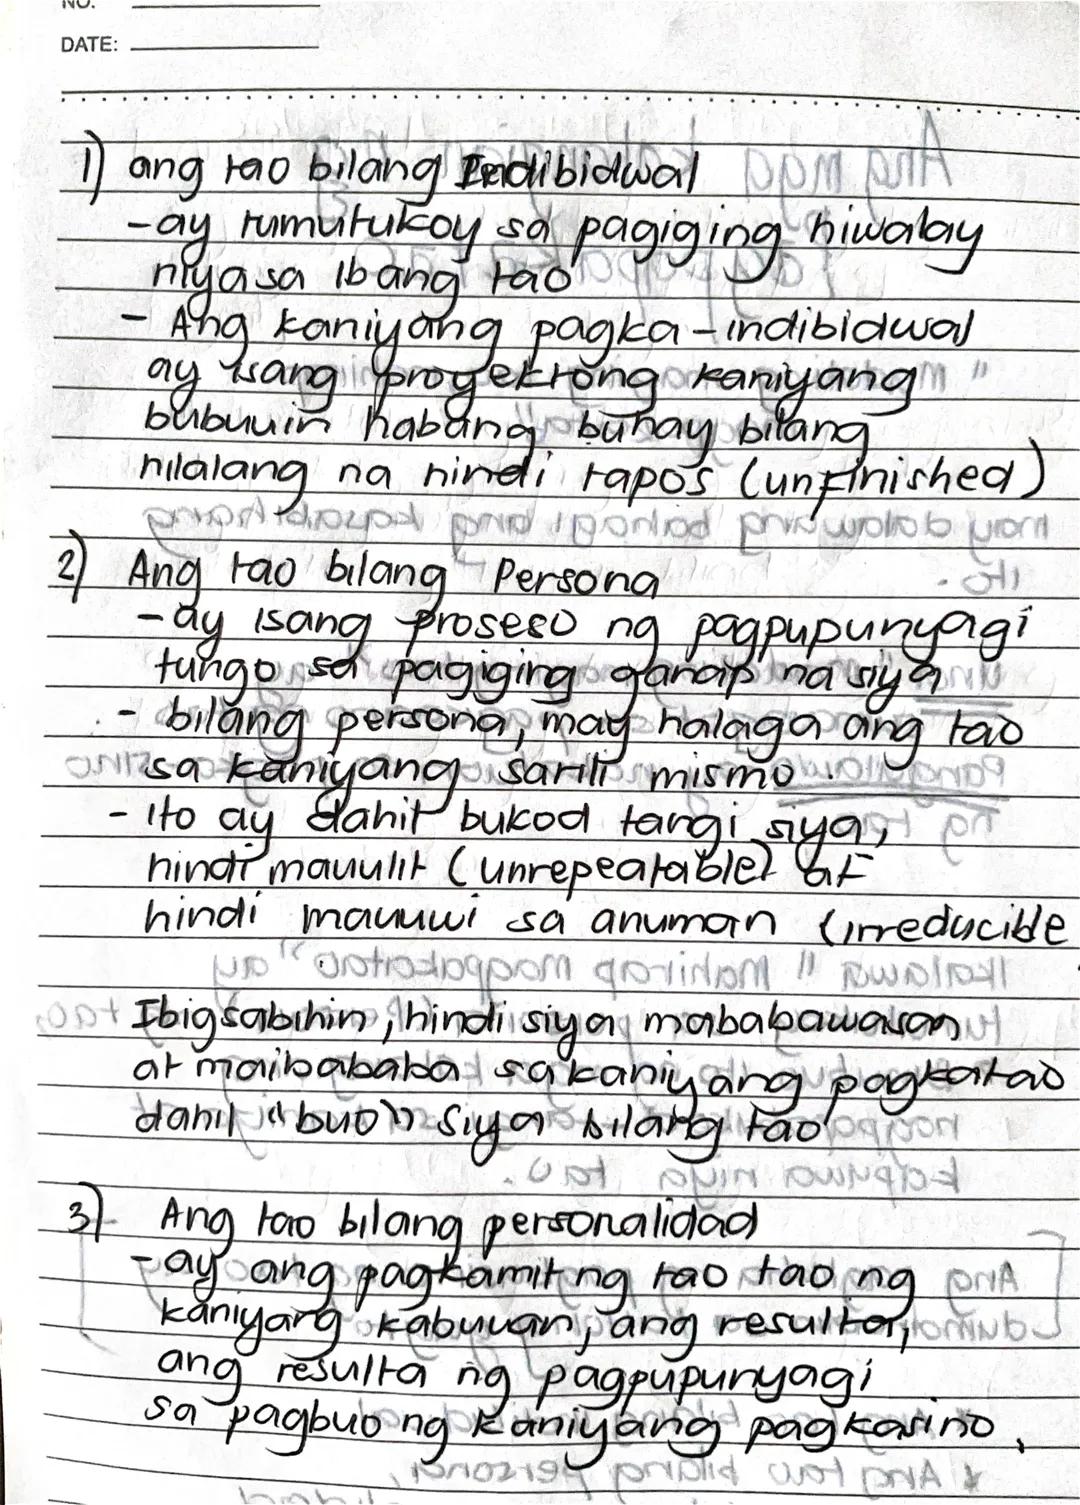 NO.
DATE:
1) ang tao bilang Indibidwal
- ay tumutukoy sa pagiging hiwalay
niya sa ibang tao
- Ang kaniyang pagka-indibidwal
ay isang proyektong kaniyang
bubuuin habang buhay bilang
nilalang na hindi tapos (unfinished)
2) Ang tao bilang Persona
- ay isang proseso ng pagpupunyagi
tungo sa pagiging ganap na siya
- bilang persona, may halaga ang tao
sa kaniyang sarili mismo.
- Ito ay dahil bukod tangi siya,
hindi mauulit (unrepeatable) at
hindi mauuwi sa anuman (irreducible
Ibigsabihin, hindi siya mababawasan
at maibababa sa kaniyang pagkatao
dahil "buo" siya bilang tao
3) Ang tao bilang personalidad
- ay ang pagkamit ng tao tao ng
kaniyang kabuuan, ang resulta,
ang resulta ng pagpupunyagi
sa pagbuo ng kaniyang pagkasino.